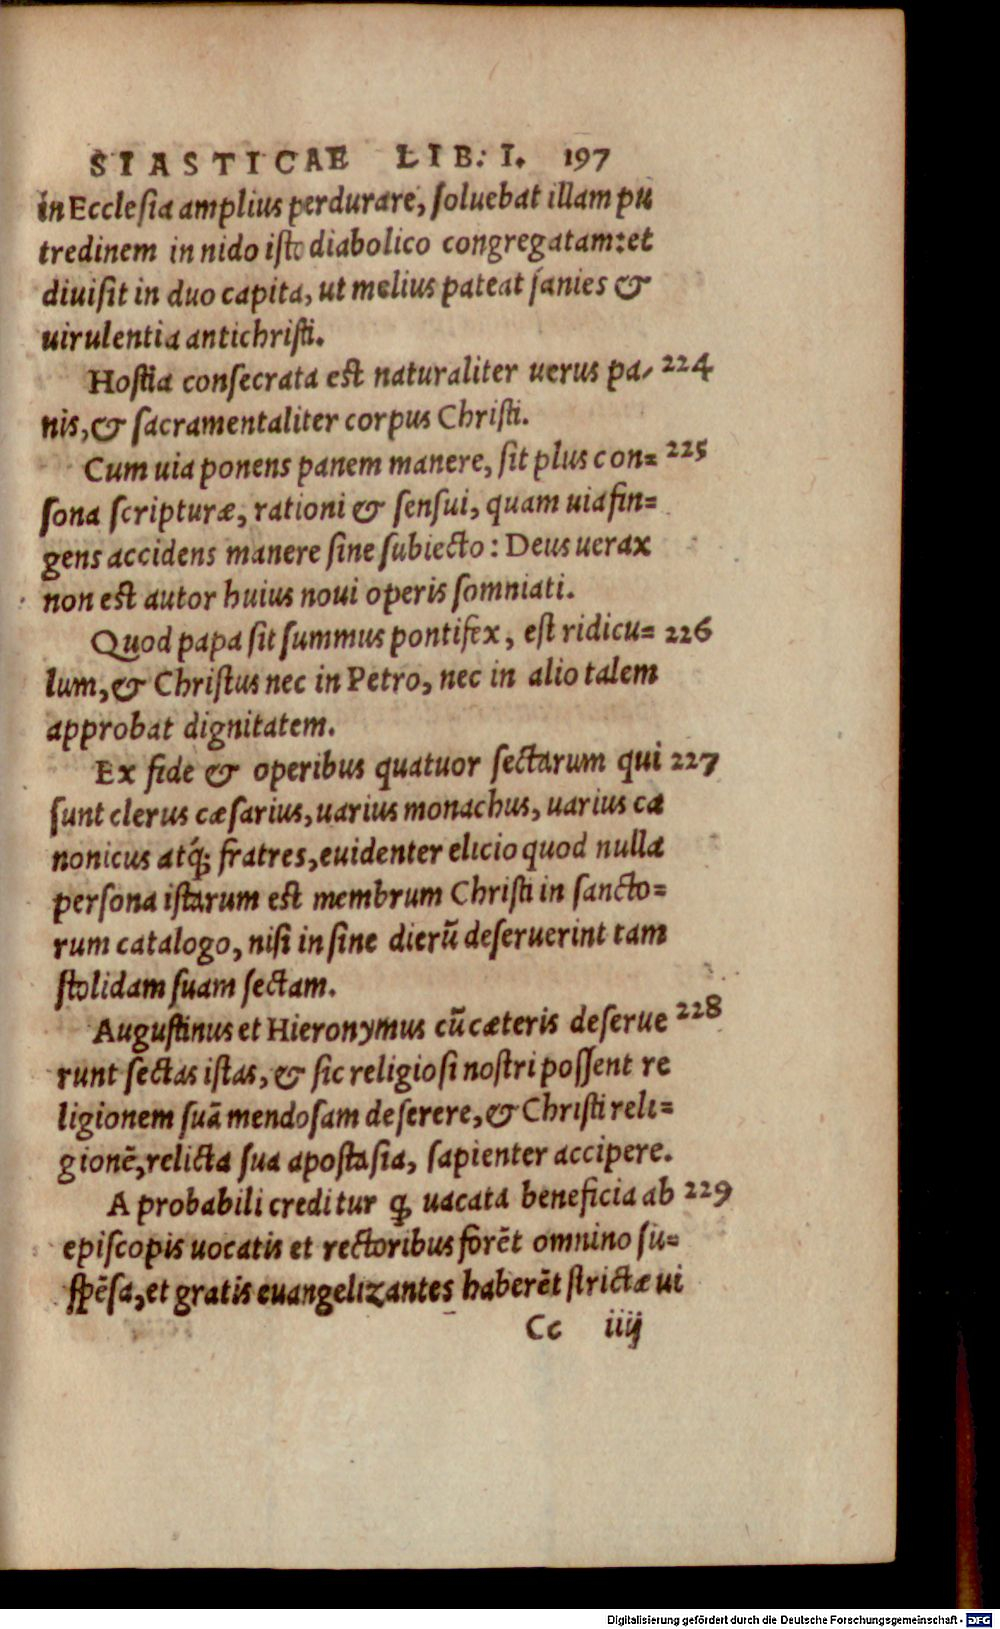 SIASTICAE LIB. I. 197
in Ecclesia amplius perdurare, soluebat illam pu
tredinem in nido isto diabolico congregatam: et
diuisit in duo capita, ut melius pateat sanies &
uirulentia antichristi.
Hostia consecrata est naturaliter uerus pa- 224
nis, & sacramentaliter corpus Christi.
Cum uia ponens panem manere, sit plus con= 225
sona scripturæ, rationi & sensui, quam uia fin=
gens accidens manere sine subiecto: Deus uerax
non est autor huius noui operis somniati.
Quod papa sit summus pontifex, est ridicu= 226
lum, & Christus nec in Petro, nec in alio talem
approbat dignitatem.
Ex fide & operibus quatuor sectarum qui 227
sunt clerus cæsarius, uarius monachus, uarius ca
nonicus atq; fratres, euidenter elicio quod nulla
persona istarum est membrum Christi in sancto=
rum catalogo, nisi in sine dierũ deseruerint tam
stolidam suam sectam.
Augustinus et Hieronymus cũ cæteris deserue 228
runt sectas istas, & sic religiosi nostri possent re
ligionem suã mendosam deserere, & Christi reli=
gionẽ, relicta sua apostasia, sapienter accipere.
A probabili creditur ꝙ uacata beneficia ab 229
episcopis uocatis et rectoribus forẽt omnino su=
spẽsa, et gratis euangelizantes haberẽt strictæ ui
Cc iiij
Digitalisierung gefördert durch die Deutsche Forschungsgemeinschaft - DFG